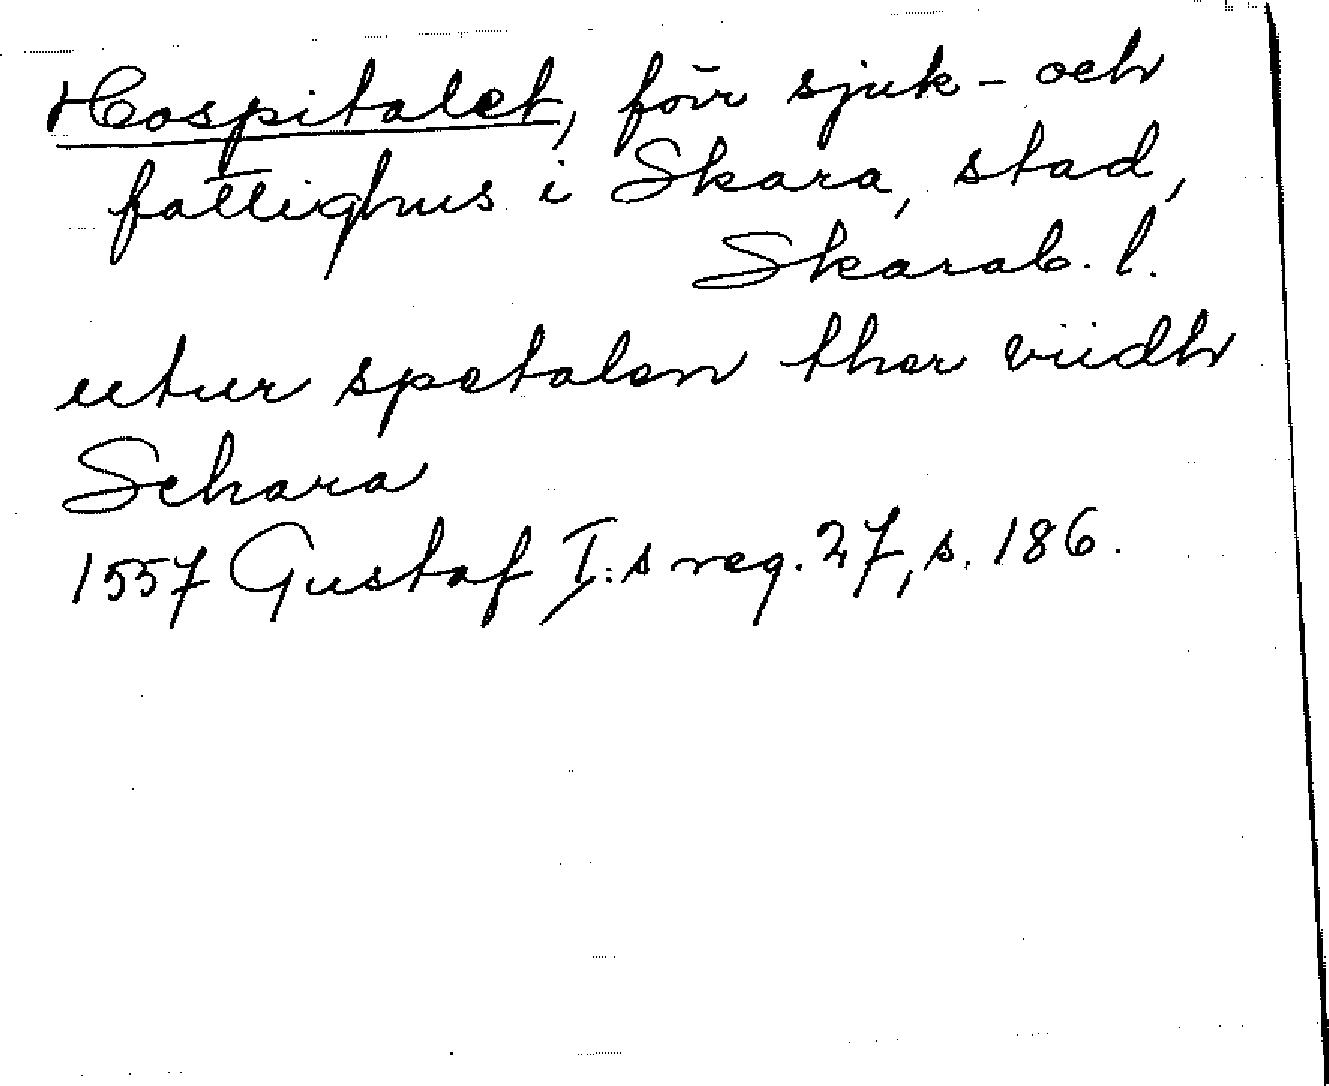 Hospitalet, förr sjuk- och
fattighus i Skara, stad,
Skarab. l.
uthur spetalen ther viidh
Schara
1557 Gustaf I:s reg. 27, s. 186.